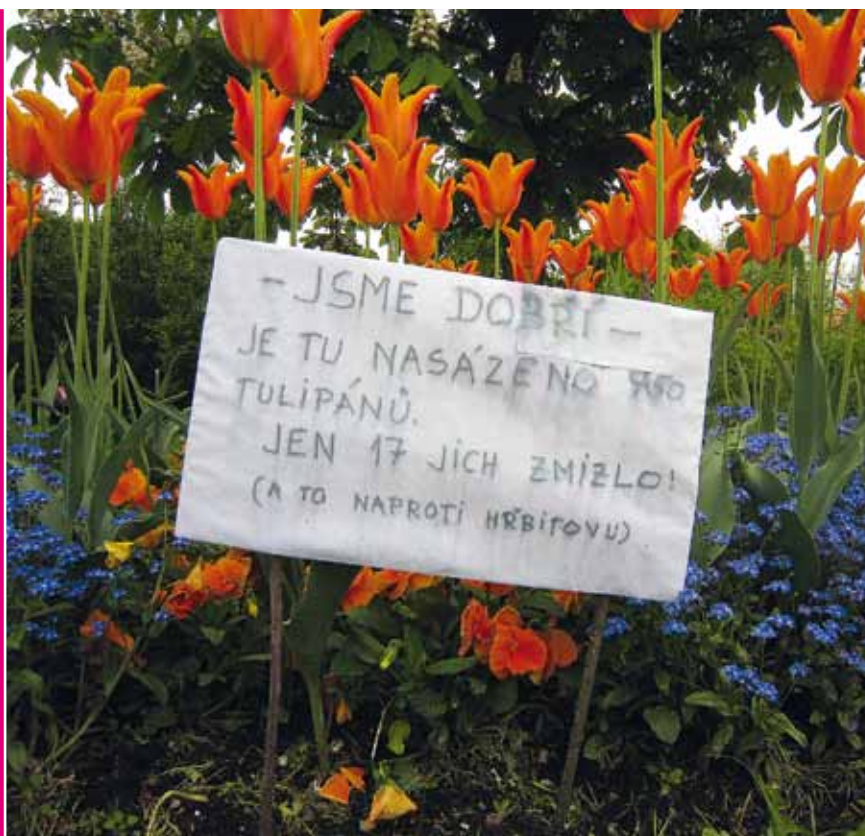 - JSME DOBŘÍ -
JE TU NASÁZENO
TULIPÁNŮ.
JEN 17 JICH ZMIZLO!
(A TO NAPROTI HŘBITOVU)